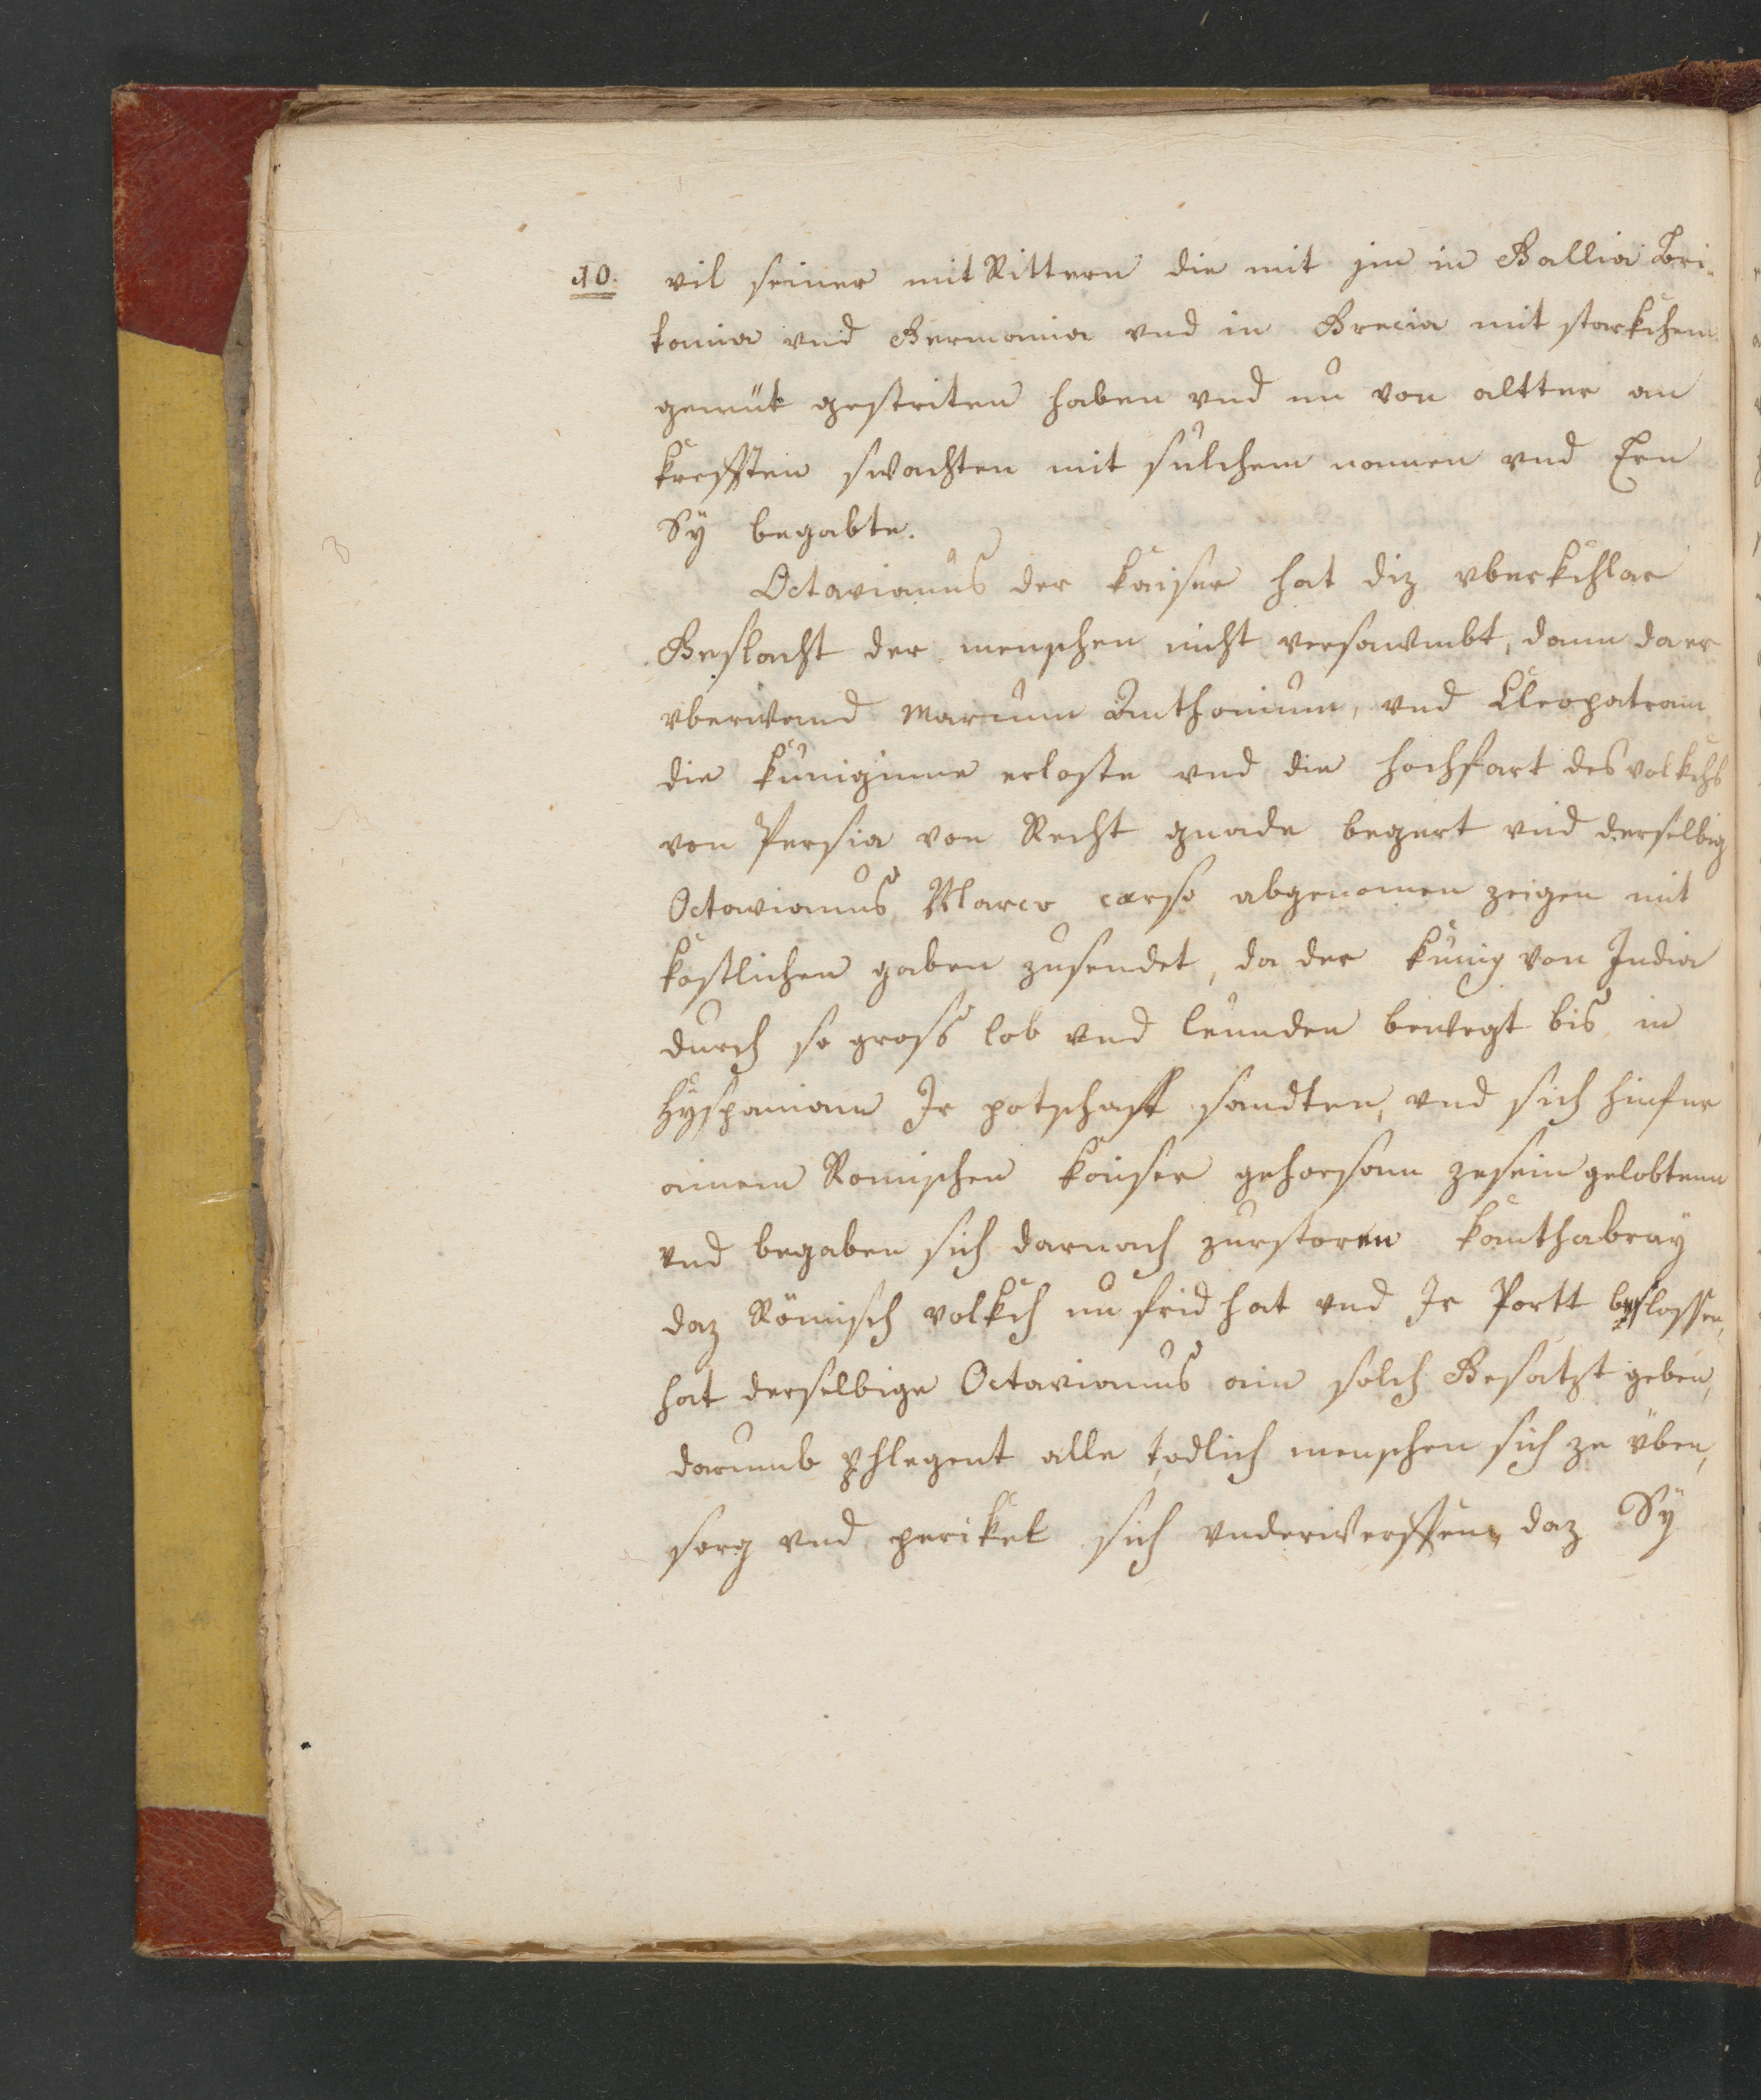 10. vil seiner mit Rittern die mit jm in Gallia Bri-
tania vnd Germania vnd in Grecia mit starkchem
gemüt gestriten haben vnd nu von altter an
krefften swachten mit sulchem namen vnd Ern
Sÿ begabte.
Octavianus der kaiser hat diz vberkchlar
Geslacht der menschen nicht versawmbt, dann da er
vberwand Marcum Anthonium, vnd Cleopatram
die kuniginne erloste vnd die hochfart des volkchs
von Persia von Recht gnade begert vnd derselbig
Octavianus Marco carso abgenomen zeigen mit
kostlichen gaben zusendet, da der kunig von India
durch so gross lob vnd leunden bewegt bis in
Hyspaniam Ir potschafft sandten, vnd sich hinfur
ainem Romischen kaiser gehorsam zesein gelobtenn
vnd begaben sich darnach zurstoren kanthabraÿ
daz Römisch volkch nu frid hat vnd Ir Portt beslossen,
hat derselbige Octavianus ain solch Gesatzt geben,
darumb phlegent alle todlich menschen sich ze üben,
sorg vnd perikel sich vnderwerffen, daz Sÿ